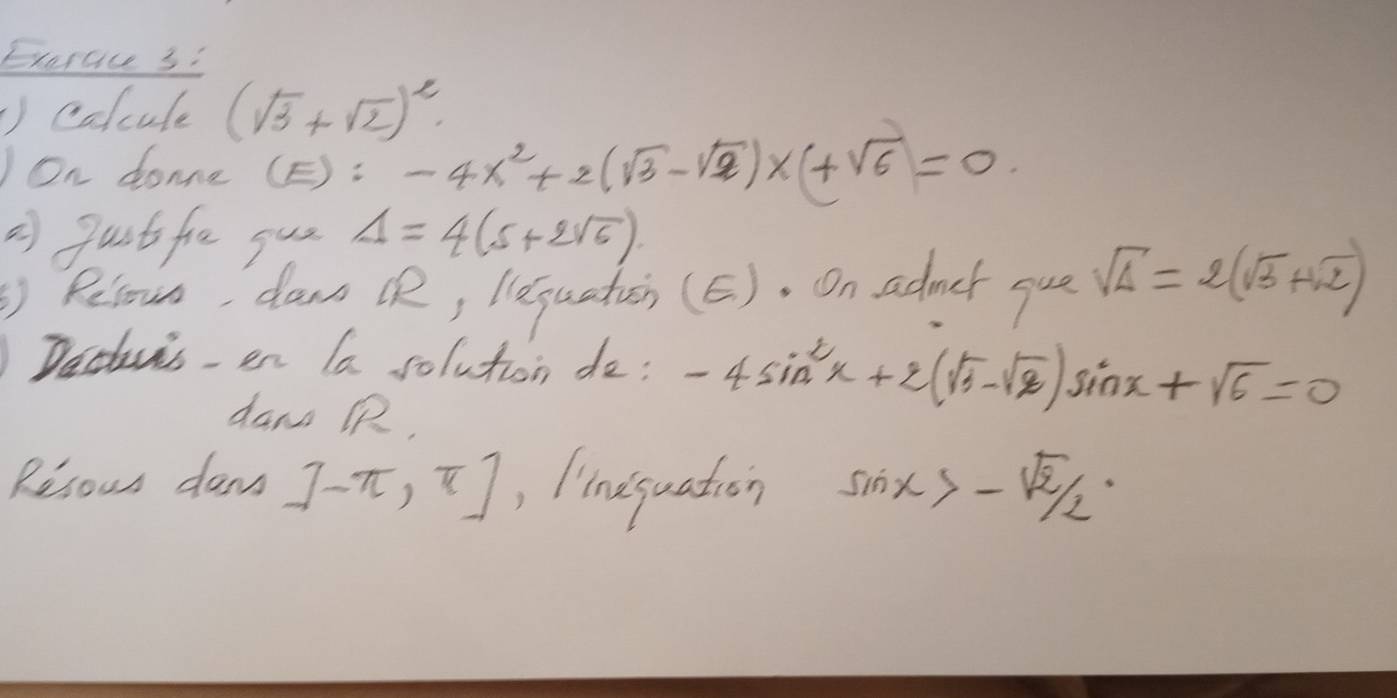 Exercice 3:
1) Calcule (√3 + √2)².
) On donne (E): -4x² + 2(√3 - √2)x (+√6) = 0.
a) Justifie que Δ = 4(5 + 2√6).
b) Résous - dans ℝ, l'équation (E). On admet que √Δ = 2(√3 + √2)
) Déduis - en la solution de: -4 sin²x + 2(√3 - √2) sinx + √6 = 0
dans ℝ.
Résous dans ]-π, π], l'inéquation sinx > -√2/2.